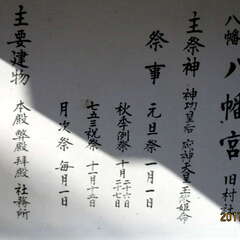 八幡 八幡宮 旧村社
主祭神 神功皇后 応神天皇 玉依姫命
祭事 元旦祭 一月一日
秋季例祭 十月二十六日 二十七日
七五三祝祭 十一月十五日
月次祭 毎月一日
主要建物 本殿 幣殿 拝殿 社務所